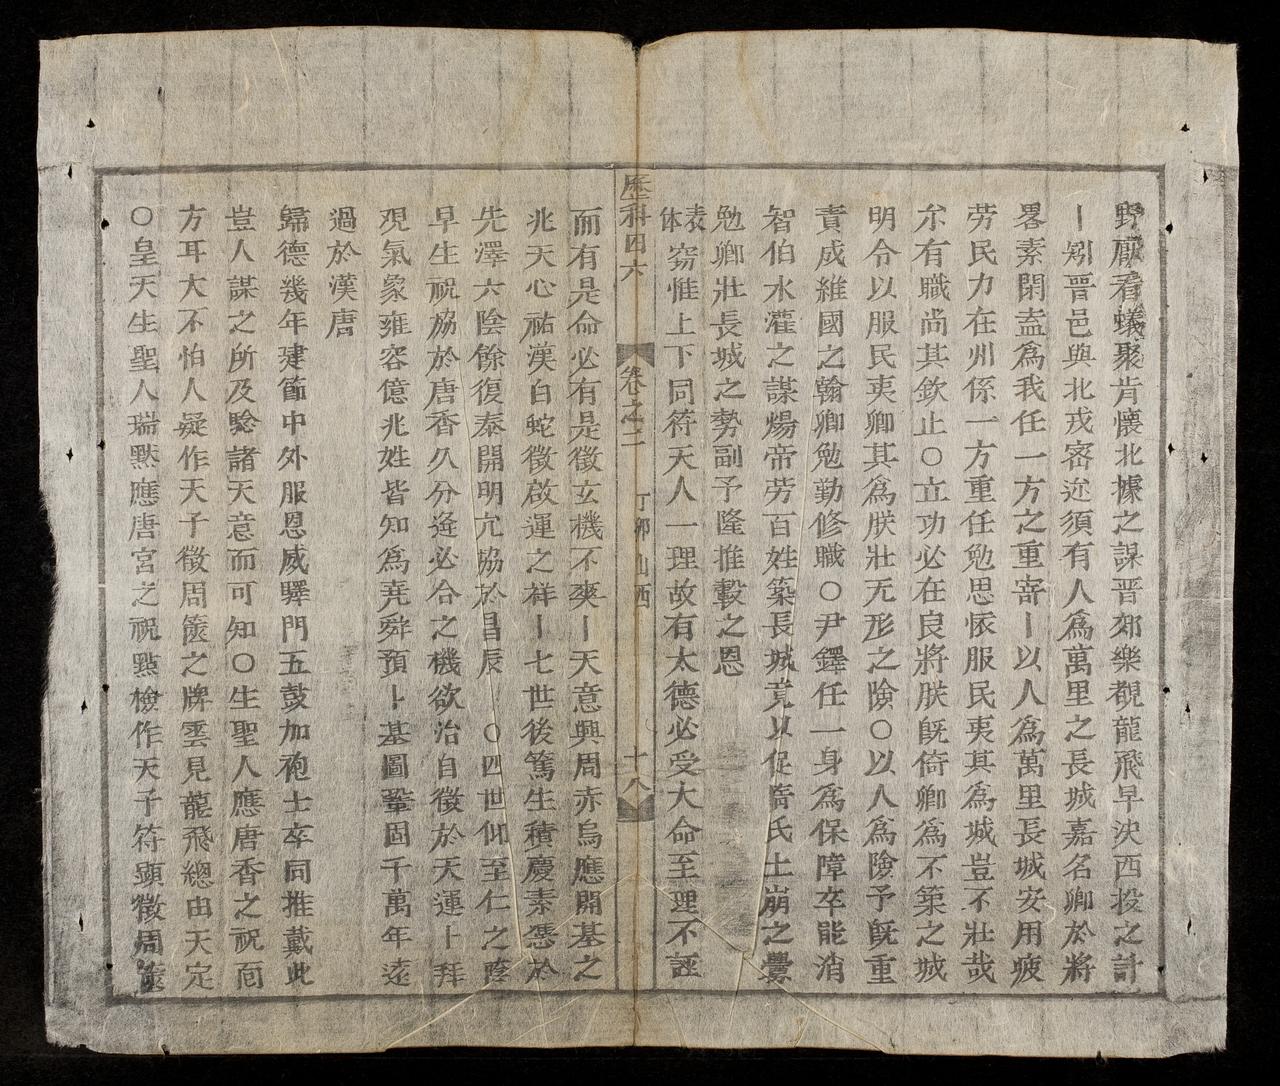 野廟看蟻聚肯懷北據之謀晋郊樂覩龍飛早決西投之計
丨矧晋邑與北戎宻迩須有人爲萬里之長城嘉名卿於將
畧素閑盍爲我任一方之重寄丨以人爲萬里長城安用疲
劳民力在州係一方重任勉思恢服民夷其爲城豈不壯哉
尒有職尚其欽止〇立功必在良將朕旣倚卿爲不築之城
明令以服民夷卿其爲朕壯无形之険〇以人爲険予旣重
責成維國之翰卿勉勤修職〇尹鐸任一身爲保障卒能消
智伯水灌之謀煬帝劳百姓築長城竟以促隋氏土崩之釁
勉卿壯長城之勢副予隆推轂之恩
表体 窃惟上下同符天人一理故有太德必受大命至理不誣
歷科四六 卷之二 丁卯山西 十八
而有是命必有是徵玄機不爽丨天意興周赤烏應開基之
兆天心祐漢白蛇徵啟運之祥丨七世後篤生積慶素憑於
先澤六陰餘復泰開明亢協於昌辰 〇四世仰至仁之蔭
早生祝協於唐香久分逄必合之機欲治自徵於天運丨拜
覌氣象雍容億兆姓皆知爲堯舜預丨基圖鞏固千萬年逺
過於漢唐
歸德幾年建節中外服恩威驛門五鼓加袍士卒同推戴此
豈人謀之所及騐諸天意而可知〇生聖人應唐香之祝囱
方耳大不怕人疑作天子徵周篋之牌雲見龍飛總由天定
〇皇天生聖人瑞黙應唐宮之祝㸃檢作天子符顕徵周篋